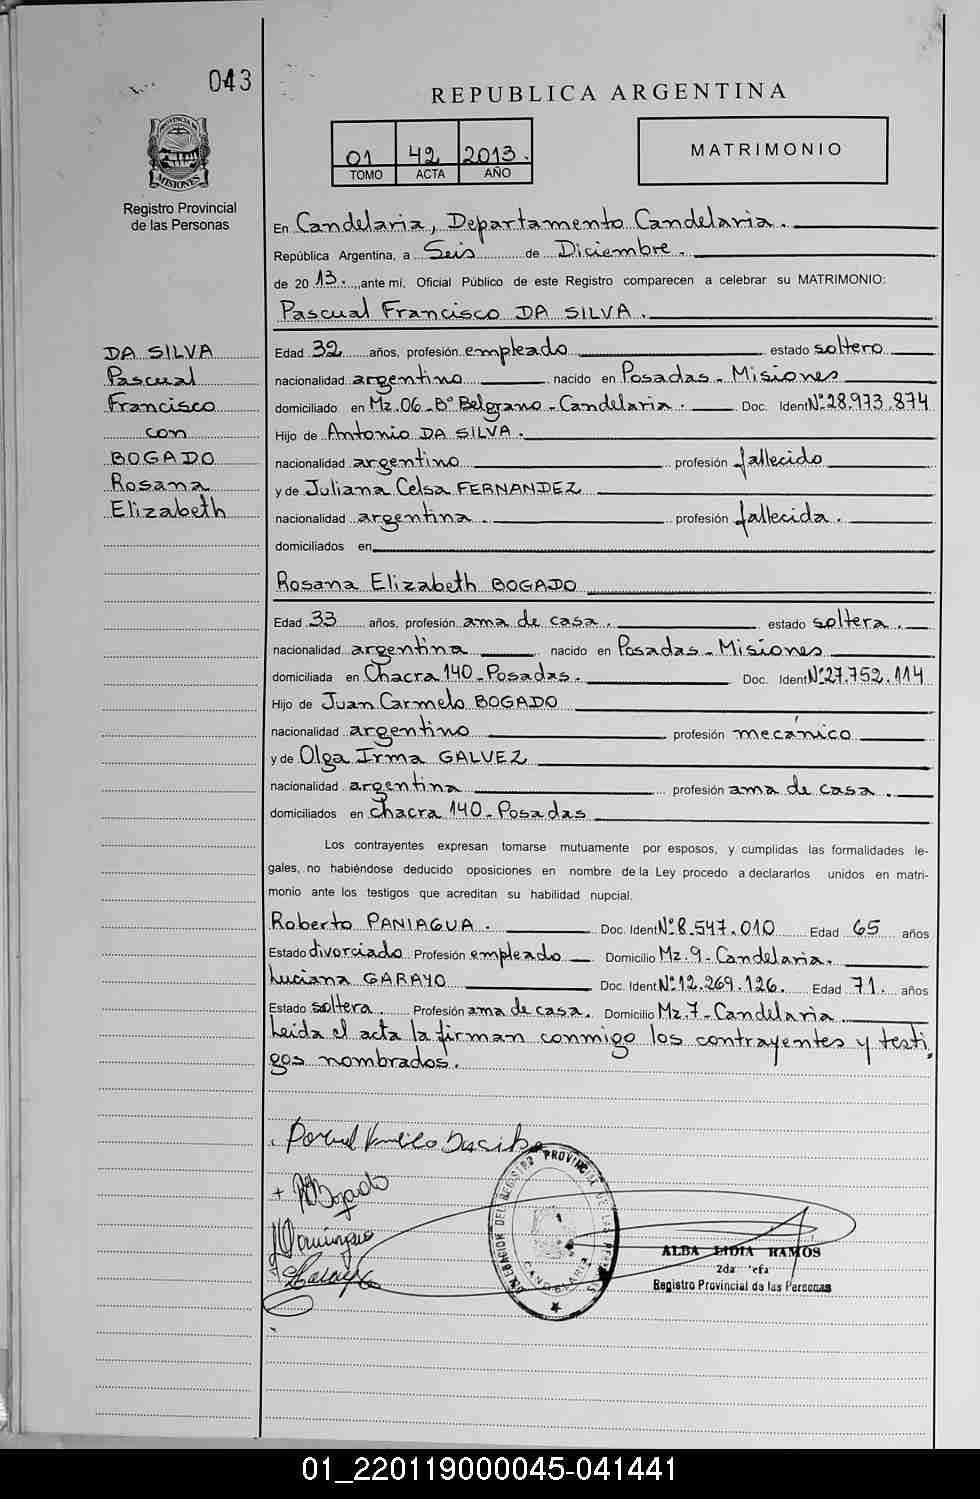 043
REPUBLICA ARGENTINA
01 42 2013.
TOMO ACTA AÑO
MATRIMONIO
PROVINCIA DE
MISIONES
Registro Provincial
de las Personas
En Candelaria, Departamento Candelaria.
República Argentina, a Seis de Diciembre.
de 2013., ante mí, Oficial Público de este Registro comparecen a celebrar su MATRIMONIO:
Pascual Francisco DA SILVA.
DA SILVA
Pascual
Francisco
con
BOGADO
Rosana
Elizabeth
Edad 32 años, profesión empleado estado soltero
nacionalidad argentino nacido en Posadas - Misiones
domiciliado en Mz. 06 - B° Belgrano - Candelaria. Doc. Ident Nº 28.973.874
Hijo de Antonio DA SILVA.
nacionalidad argentino profesión fallecido
y de Juliana Celsa FERNANDEZ
nacionalidad argentina. profesión fallecida.
domiciliados en
Rosana Elizabeth BOGADO
Edad 33 años, profesión ama de casa. estado soltera.
nacionalidad argentina nacido en Posadas - Misiones
domiciliada en Chacra 140 - Posadas. Doc. Ident Nº 27.752.114
Hijo de Juan Carmelo BOGADO
nacionalidad argentino profesión mecánico
y de Olga Irma GALVEZ
nacionalidad argentina profesión ama de casa.
domiciliados en Chacra 140 - Posadas
Los contrayentes expresan tomarse mutuamente por esposos, y cumplidas las formalidades le-
gales, no habiéndose deducido oposiciones en nombre de la Ley procedo a declararlos unidos en matri-
monio ante los testigos que acreditan su habilidad nupcial.
Roberto PANIAGUA. Doc. Ident Nº 8.547.010 Edad 65 años
Estado divorciado Profesión empleado Domicilio Mz. 9 - Candelaria.
Luciana GARAYO Doc. Ident Nº 12.269.126. Edad 71. años
Estado soltera. Profesión ama de casa. Domicilio Mz. 7 - Candelaria.
Leída el acta la firman conmigo los contrayentes y testi
gos nombrados.
Bogado
DELEGACION DEL REGISTRO PROVINCIAL DE LAS PERSONAS
CANDELARIA
ALBA LIDIA RAMOS
2da efa
Registro Provincial de las Personas
01_220119000045-041441